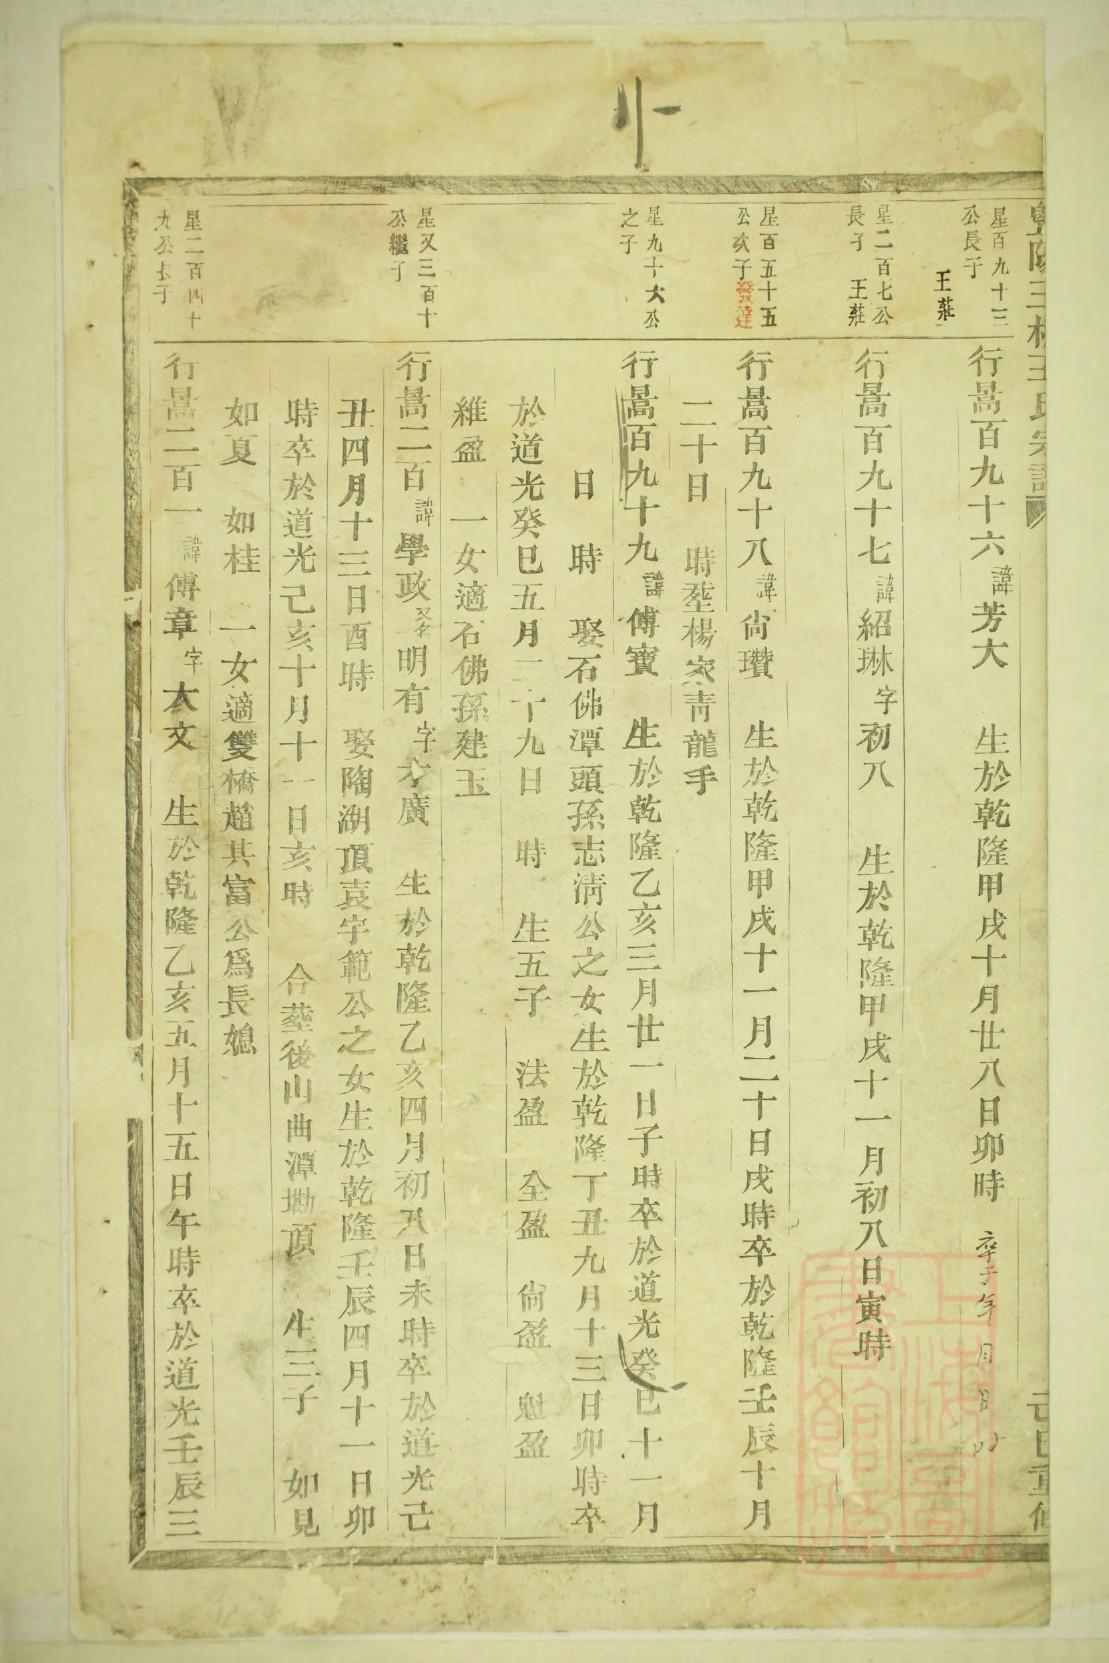 卄
暨陽三樹王氏宗譜
己巳重修
星百九十三
公長子
王莊
行暠百九十六諱芳大　生於乾隆甲戌十月廿八日卯時　卒于年月日时
星二百七公
長子　王莊
行暠百九十七諱紹琳字初八　生於乾隆甲戌十一月初八日寅時
星百五十五
公次子發達
行暠百九十八諱尙瓚　生於乾隆甲戌十一月二十日戌時卒於乾隆壬辰十月
二十日　時塟楊家靑龍手
星九十六公
之子
行暠百九十九諱傅寳　生於乾隆乙亥三月廿一日子時卒於道光癸巳十一月
日　時　娶石佛潭頭孫志淸公之女生於乾隆丁丑九月十三日卯時卒
於道光癸巳五月二十九日　時　生五子　法盈　全盈　尙盈　魁盈
維盈　一女適石佛孫建玉
星又三百十
公繼子
行暠二百諱學政又名明有字才廣　生於乾隆乙亥四月初八日未時卒於道光己
丑四月十三日酉時　娶陶湖頂袁宇範公之女生於乾隆壬辰四月十一日卯
時卒於道光己亥十月十一日亥時　合塟後山曲潭墈頂　生三子　如見
如夏　如桂　一女適雙橋趙其富公爲長媳
星二百四十
九公長子
行暠二百一諱傅章字太文　生於乾隆乙亥五月十五日午時卒於道光壬辰三
上海圖
書館藏